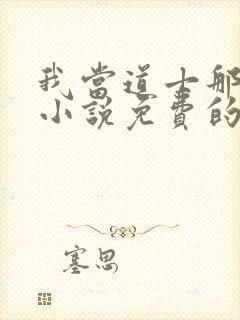 我當道士那
小說免費的
塞思